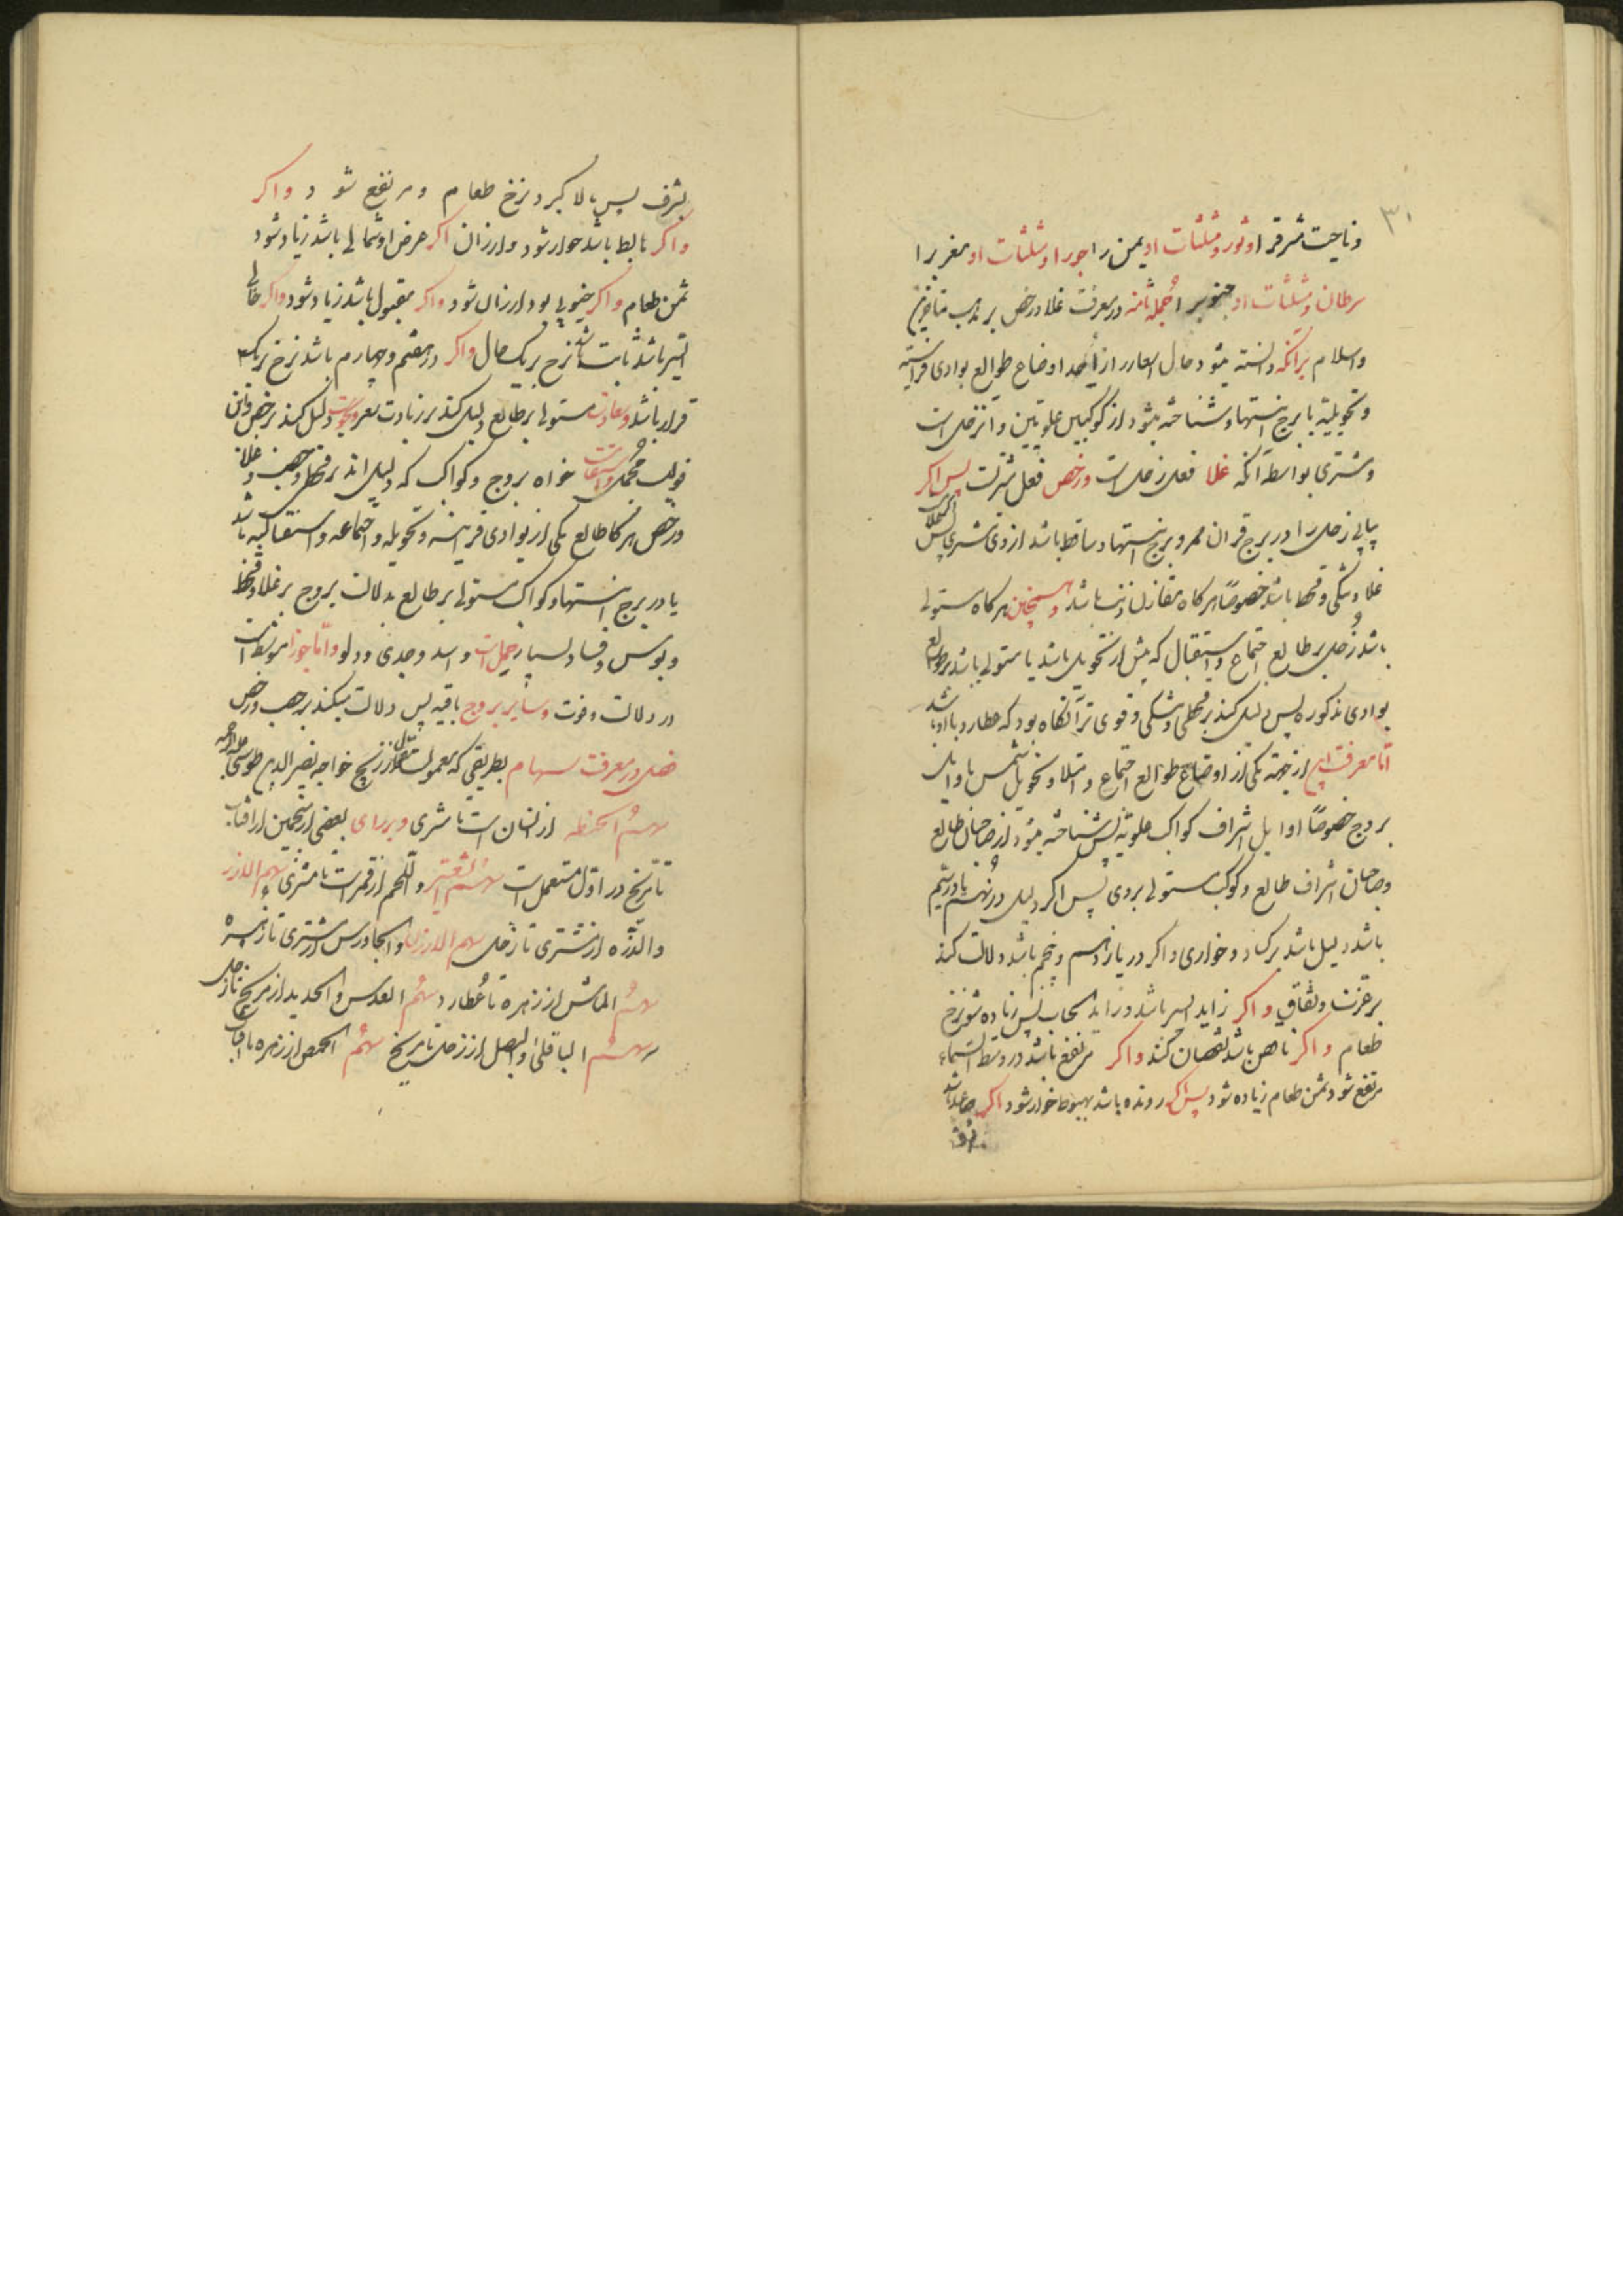 ۳۱
و ناحیت مشرق را و ثور و مثلثات او یمن را جوزا و مثلثات او مغرب را
سرطان و مثلثات او جنوب را جمله ثامنه در معرفت غلا و رخص بر مذهب متأخرین
والسلام بدانکه دانسته میشود حال اسعار از اوضاع طوالع بوادی قرانیه
و تحویلیه یا برج انتها و شناخته میشود از کوکبین علویین و آن زحل است
و مشتری بواسطه آنکه غلا فعل زحل است و رخص فعل مشتریست پس اگر
یابی زحل را در برج قران ممر و برج انتها و ساقط باشد از وی مشتری پس
غلا و تنگی و قحط باشد خصوصاً هرگاه مقارن ذنب باشد و همچنین هرگاه مستولی
باشد زحل بر طالع اجتماع و استقبال که پیش از تحویل باشد یا مستولی باشد بر طوالع
بوادی مذکوره پس دلیل کند بر قحطی و تنگی و قوی تر آنگاه بود که عطارد با او باشد
اما معرفت این از جهت یکی از اوضاع طوالع اجتماع و امتلا و تحویل شمس باوایل
بروج خصوصاً اوایل اشراف کواکب علویه پس شناخته میشود از صاحبان طالع
و صاحبان اشراف طالع و کوکب مستولی بر وی پس اگر دلیل در نهم یا در سیم
باشد دلیل باشد بر کساد و خواری و اگر در یازدهم و پنجم باشد دلالت کند
بر عزت و نفاق و اگر زاید السیر باشد و زاید الحساب پس زیاده شود نرخ
طعام و اگر ناقص باشد نقصان کند و اگر مرتفع باشد در وسط السماء
مرتفع شود و ثمن طعام زیاده شود پس اگر رونده باشد بهبوط خوار شود اگر صاعد باشد
بشرف
بشرف پس بالا گیرد نرخ طعام و مرتفع شود و اگر
و اگر هابط باشد خوار شود و ارزان اگر عرض او شمالی باشد زیاد شود
ثمن طعام و اگر جنوبی بود ارزان شود و اگر مقبول باشد زیاد شود و اگر خالی
السیر باشد ثابت باشد نرخ بر یک حال و اگر در هفتم و چهارم باشد نرخ بر یک
قرار باشد و سعادت مستولی بر طالع دلیل کند بر زیادت سعر و نحوست دلیل کند بر رخص و این
خواه بروج و کواکب که دلیل اند بر قحط و خصب و غلا
و رخص هرگاه طالع یکی از بوادی قرانیه و تحویلیه و اجتماعیه و استقبالیه باشد
یا در برج انتها و کواکب مستولی بر طالع بدلالت بروج بر غلا و قحط
و بؤس و فساد بسیار حمل است و اسد و جدی و دلو و اما جوزا متوسط است
در دلالت و قوت و سایر بروج باقیه پس دلالت میکند بر خصب و رخص
فصل در معرفت سهام بطریقی که معمولست نقل از زیج خواجه نصیر الدین طوسی علیه الرحمه
سهم الحنطه از است تا مشتری و بر رأی بعضی از منجمین از آفتاب
تا مریخ در اول مستعمل است سهم الشعیر و اللحم از قمر است تا مشتری سهم الارز
والذره از مشتری تا زحل سهم الارزن والجاورس از مشتری تا زهره
سهم الماش از زهره تا عطارد سهم العدس والحدید از مریخ تا زحل
سهم الباقلی والبصل از زحل تا مریخ سهم الحمص از زهره تا آفتاب